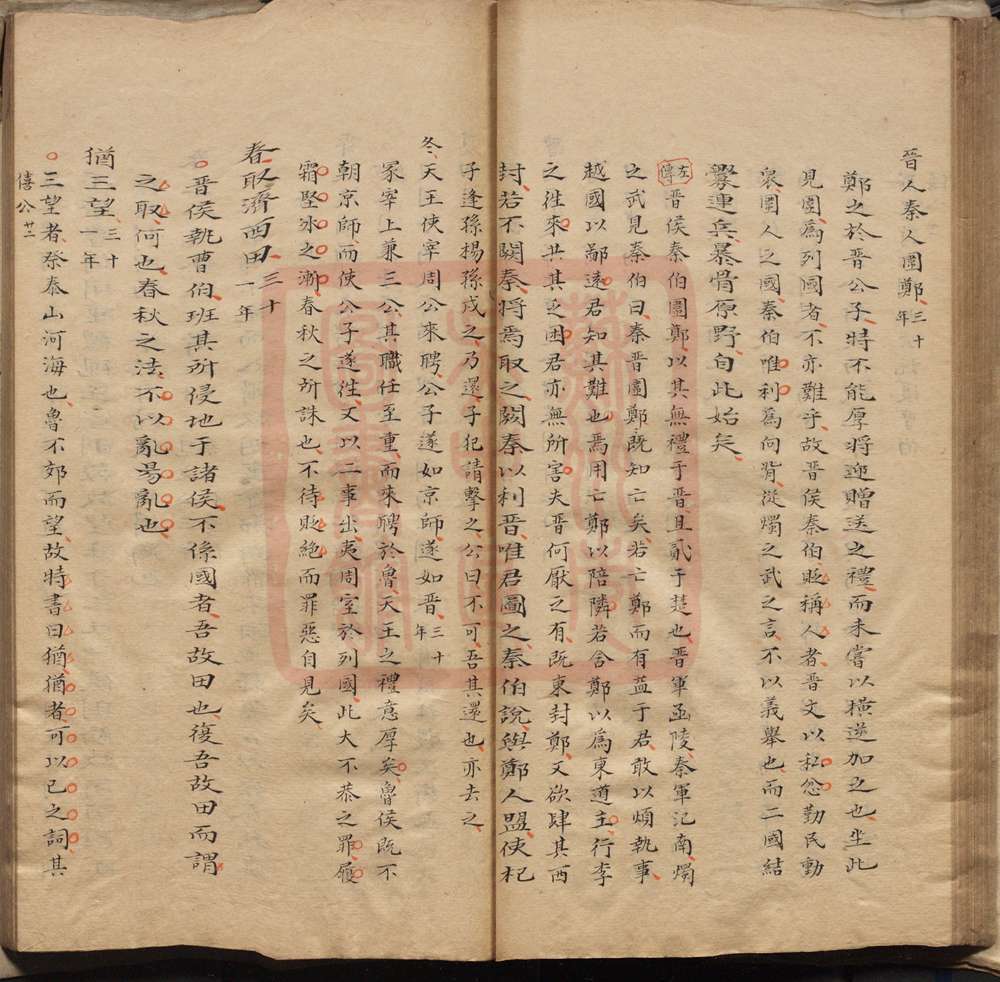 晉人秦人圍鄭三十年
鄭之於晉公子特不能厚將迎贈送之禮而未嘗以橫逆加之也坐此
見圍為列國者不亦難乎故晉侯秦伯貶稱人者晉文以私忿勤民動
衆圍人之國秦伯唯利為向背從燭之武之言不以義舉也而二國結
釁連兵暴骨原野自此始矣
左傳晉侯秦伯圍鄭以其無禮于晉且貳于楚也晉軍函陵秦軍氾南燭
之武見秦伯曰秦晉圍鄭既知亡矣若亡鄭而有益于君敢以煩執事
越國以鄙遠君知其難也焉用亡鄭以陪隣若舍鄭以為東道主行李
之徃來共其乏困君亦無所害夫晉何厭之有既東封鄭又欲肆其西
封若不闕秦將焉取之闕秦以利晉唯君圖之秦伯說與鄭人盟使杞
子逢孫楊孫戍之乃還子犯請擊之公曰不可吾其還也亦去之
冬天王使宰周公來聘公子遂如京師遂如晉三十年
冢宰上兼三公其職任至重而來聘於魯天王之禮意厚矣魯侯既不
朝京師而使公子遂徃又以二事出夷周室於列國此大不恭之罪履
霜堅冰之漸春秋之所誅也不待貶絶而罪惡自見矣
春取濟西田三十一年
晉侯執曹伯班其所侵地于諸侯不係國者吾故田也復吾故田而謂
之取何也春秋之法不以亂易亂也
猶三望三十一年
三望者祭泰山河海也魯不郊而望故特書曰猶猶者可以已之詞其
僖公廿二